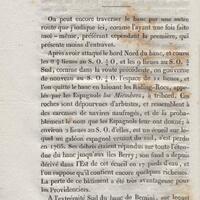 On peut encore traverser le banc par une autre
route que j'indique ici, comme l'ayant une fois faite
moi-même, préférant cependant la première, qui
présente moins d'entraves.
Après avoir attaqué le bord Nord du banc, et couru
les 8 ¾ lieues au S. ¼ O. et les 9 lieues au S. ¼
Sud, comme dans la route précédente, on gouverne
de nouveau au S. O. ¼ O. l'espace de 11 lieues, et
l'on quitte le banc en laissant les Riding-Rocs, appe-
lés par les Espagnols los Mirradores, à tribord. Ces
roches sont dépourvues d'arbustes, et ressemblent à
des carcasses de navires naufragés, et de là proba-
blement le nom que les Espagnols leur ont donné; à
environ 2 lieues au S. O. d'elles, est un écueil sur le-
quel un galion espagnol venant du golfe, s'est perdu
en 1765. Ses débris étaient répandus sur toute l'éten-
due du banc jusqu'aux îles Berry; son fond a depuis
été retrouvé à l'Est de cet écueil en 17 pieds d'eau, et
l'on suppose qu'il contient encore quelques richesses.
La perte de ce bâtiment a été très avantageuse pour
les Providenciers.
A l'extrémité Sud du banc de Bemini, sur lequel